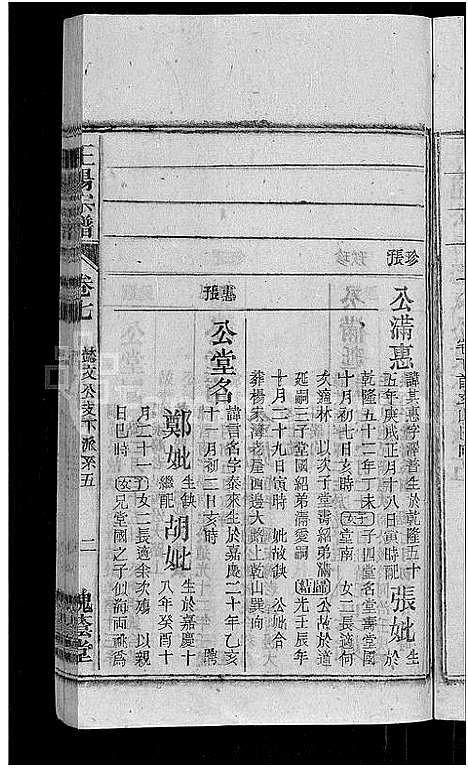 張珍
公滿惠
諱其惠字譯者生於乾隆五十
五年庚戌正月十八日寅時配
張妣
生於
乾隆五十二年丁未
子四堂名堂壽堂國
十月初七日亥時
女堂南 女二長適何
次適林 以次子堂壽紹弟滿歸 公故於道
延嗣三子堂國紹弟滿愛嗣 光壬辰年
十月二十九日寅時 妣故缺 公妣合
葬楊朱灣老屋西邊大路上乾山巽向
張惠
公堂名
諱言名字泰來生於嘉慶二十年乙亥
十一月初二日亥時 聘
鄭妣
生缺
繼配
胡妣
生於嘉慶十
八年癸酉十
月二十一
日巳時
子
女二長適余次殤 以親
兄堂國之子似海兩祧為
王楊宗譜
卷七
懿文公支下派系五
二
槐蔭堂